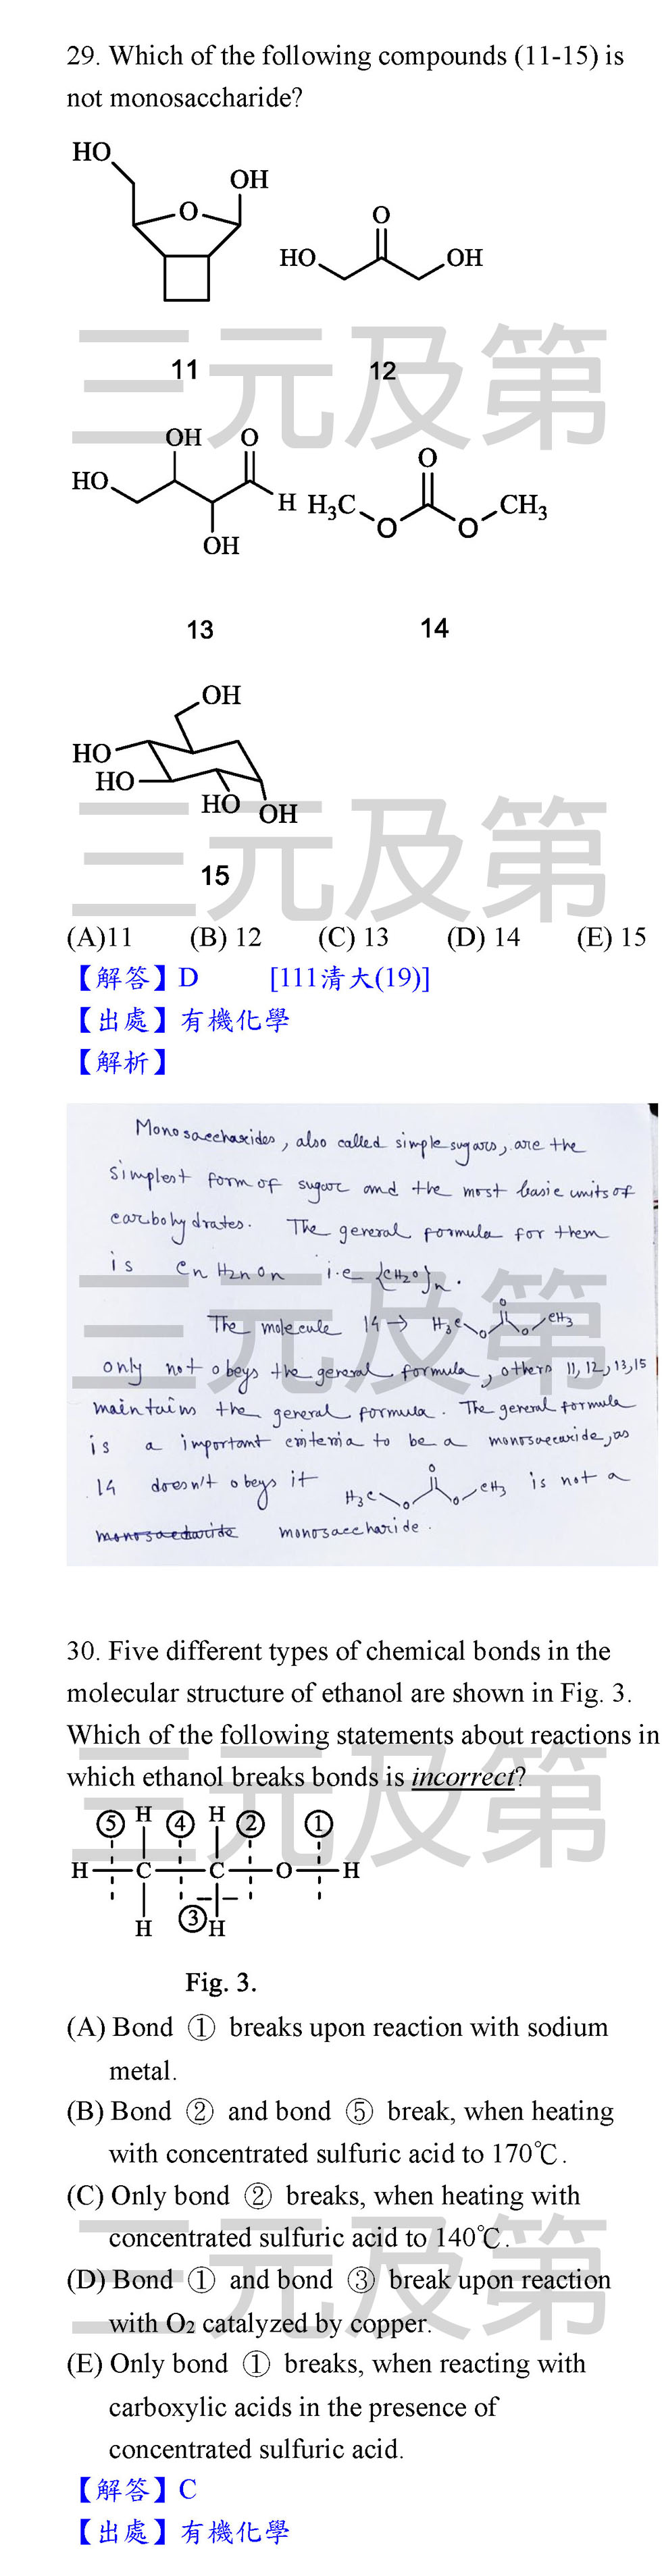 29. Which of the following compounds (11-15) is
not monosaccharide?
HO
OH
O
O
HO
OH
11
12
OH
O
HO
H
OH
O
H3C
O
O
CH3
13
14
OH
HO
HO
HO
OH
15
(A)11 (B) 12 (C) 13 (D) 14 (E) 15
【解答】D [111清大(19)]
【出處】有機化學
【解析】
Monosaccharides, also called simple sugars, are the
simplest form of sugar and the most basic units of
carbohydrates. The general formula for them
is CnH2nOn i.e {CH2O}n.
The molecule 14→ H3C O O O CH3
only not obeys the general formula, others 11, 12, 13, 15
maintains the general formula. The general formula
is a important criteria to be a monosaccaride, as
14 doesn't obeys it H3C O O O CH3 is not a
monosaccharide.
30. Five different types of chemical bonds in the
molecular structure of ethanol are shown in Fig. 3.
Which of the following statements about reactions in
which ethanol breaks bonds is incorrect?
⑤ H ④ H ② ①
H C C O H
H ③ H
Fig. 3.
(A) Bond ① breaks upon reaction with sodium
metal.
(B) Bond ② and bond ⑤ break, when heating
with concentrated sulfuric acid to 170℃.
(C) Only bond ② breaks, when heating with
concentrated sulfuric acid to 140℃.
(D) Bond ① and bond ③ break upon reaction
with O2 catalyzed by copper.
(E) Only bond ① breaks, when reacting with
carboxylic acids in the presence of
concentrated sulfuric acid.
【解答】C
【出處】有機化學
三元及第
三元及第
三元及第
三元及第
三元及第